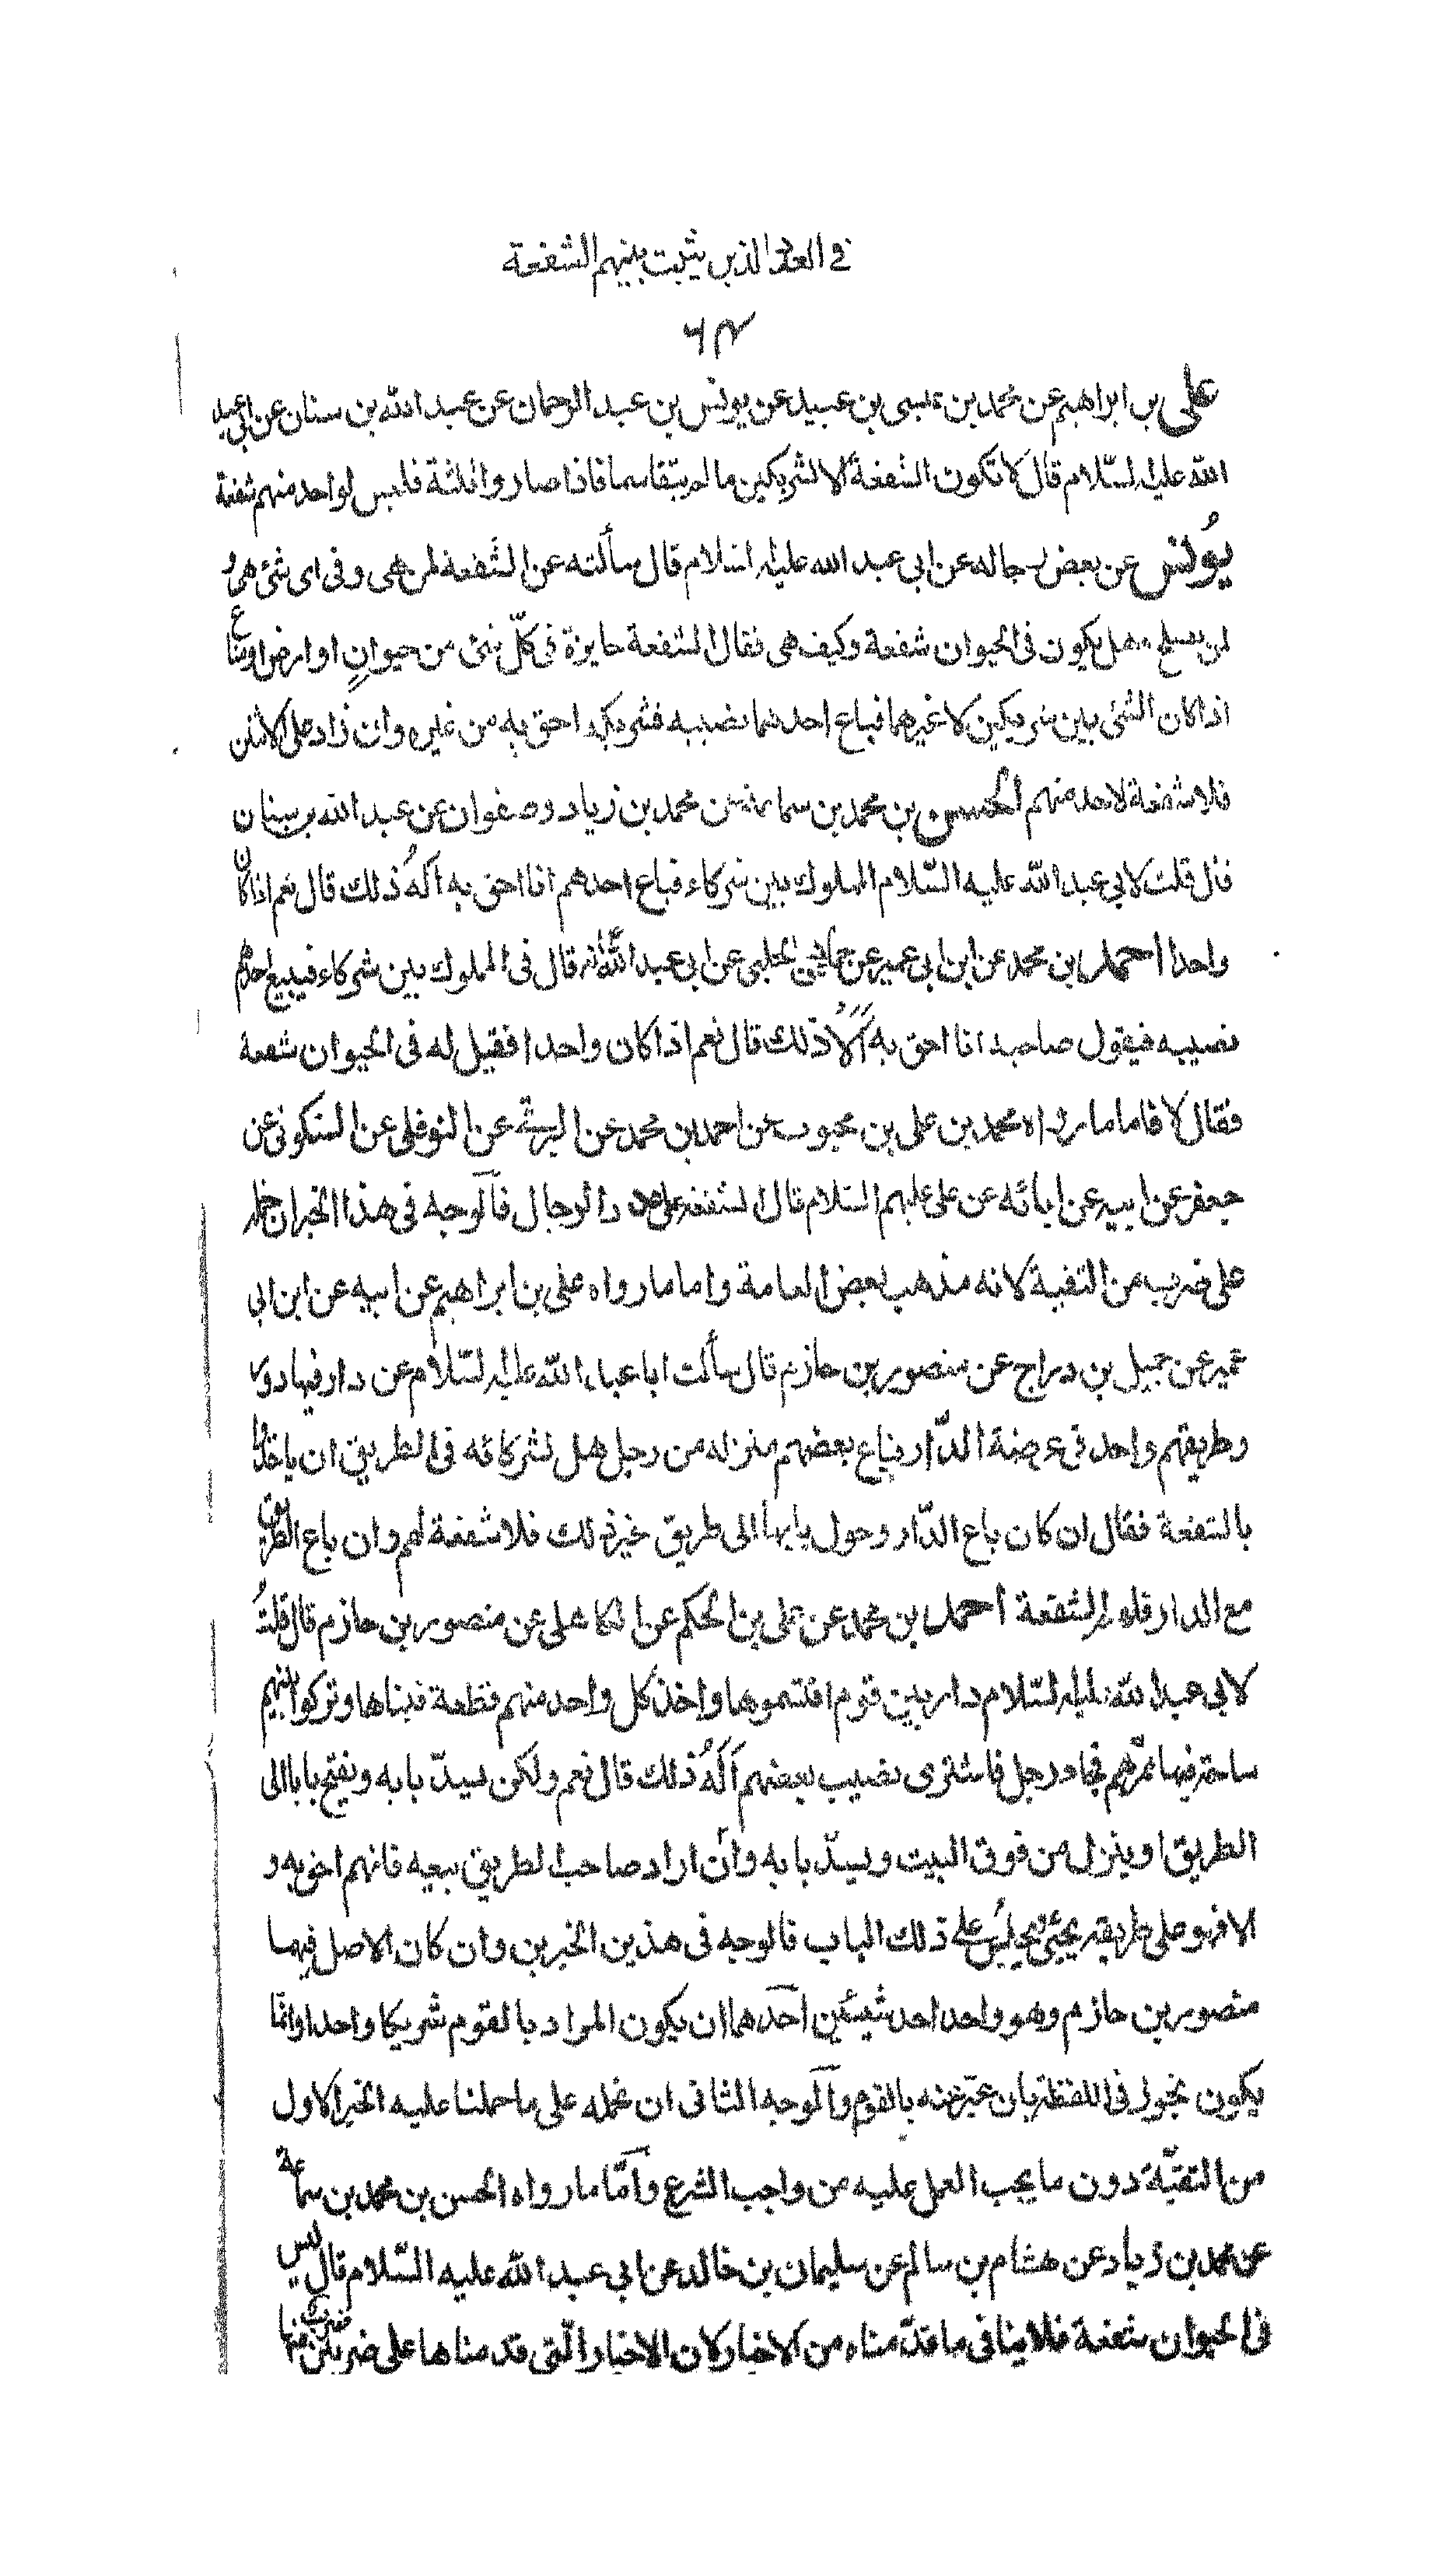 في العدد الذين يثبت بينهم الشفعة
علي بن ابراهيم عن محمد بن عيسى بن عبيد عن يونس بن عبد الرحمان عن عبد الله بن سنان عن ابي عبد
الله عليه السّلام قال لا تكون الشفعة الا لشريكين ما لم يتقاسما فاذا صاروا ثلثة فليس لواحد منهم شفعة
يُونس عن بعض رجاله عن ابي عبد الله عليه السلام قال سألته عن الشّفعة لمن هى وفى اى شئ هى و
لمن يصلح وهل يكون فى الحيوان شفعة وكيف هى فقال الشفعة جايزة فى كلّ شئ من حيوانٍ او ارض او متاع
اذا كان الشئ بين شريكين لا غيرهما فباع احدهما نصيبه فشريكه احق به من غيره وان زاد على الاثنين
فلا شفعة لاحد منهم الحسن بن محمد بن سماعة عن محمد بن زياد وصفوان عن عبد الله بن سنان
قال قلت لابي عبد الله عليه السّلام المملوك بين شركاء فباع احدهم انا احق به أله ذلك قال نعم اذا كان
واحدا احمد بن محمد عن ابن ابي عمير عن حماد عن الحلبى عن ابي عبد الله ع انه قال فى المملوك بين شركاء فيبيع احدهم
نصيبه فيقول صاحبه انا احق به أله ذلك قال نعم اذا كان واحدا فقيل له فى الحيوان شفعة
فقال لا فاما ما رواه محمد بن على بن محبوب عن احمد بن محمد عن البرقي عن النوفلى عن السكونى عن
جعفر عن ابيه عن ابائه عن على عليهم السّلام قال الشفعة على عدد الرجال فالوجه فى هذا الخبر ان نحمله
على ضرب من التقية لانه مذهب بعض العامة واما ما رواه على بن ابراهيم عن ابيه عن ابن ابى
عمير عن جميل بن دراج عن منصور بن حازم قال سألت ابا عبد الله عليه السّلام عن دار فيها دور
وطريقهم واحد فى عرصة الدّار فباع بعضهم منزله من رجل هل لشركائه فى الطريق ان ياخذوا
بالشفعة فقال ان كان باع الدّار وحول بابها الى طريق غير ذلك فلا شفعة لهم وان باع الطريق
مع الدار فلهم الشفعة احمد بن محمد عن على بن الحكم عن الكاهلى عن منصور بن حازم قال قلتُ
لابي عبد الله عليه السّلام دار بين قوم اقتسموها واخذ كل واحد منهم قطعة فبناها وتركوا بينهم
ساحة فيها ممرّهم فجاء رجل فاشترى نصيب بعضهم أله ذلك قال نعم ولكن يسدّ بابه ويفتح بابا الى
الطريق او ينزل من فوق البيت ويسدّ بابه وان اراد صاحب الطريق بيعه فانهم احق به و
الا فهو على طريقه يجئ حتى يجلس على ذلك الباب فالوجه فى هذين الخبرين وان كان الاصل فيهما
منصور بن حازم وهو واحد احد شيئين احدهما ان يكون المراد بالقوم شريكا واحدا وانما
يكون تجوز فى اللفظة بان عبّر عنه بالقوم والوجه الثانى ان نحمله على ما حملنا عليه الخبر الاول
من التقيّة دون ما يجب العمل عليه من واجب الشرع وامّا ما رواه الحسن بن محمد بن سماعة
عن محمد بن زياد عن هشام بن سالم عن سليمان بن خالد عن ابي عبد الله عليه السّلام قال ليس
فى الحيوان شفعة فلا ينافى ما قدّمناه من الاخبار لان الاخبار الّتى قدمناها على ضربين ضرب منها